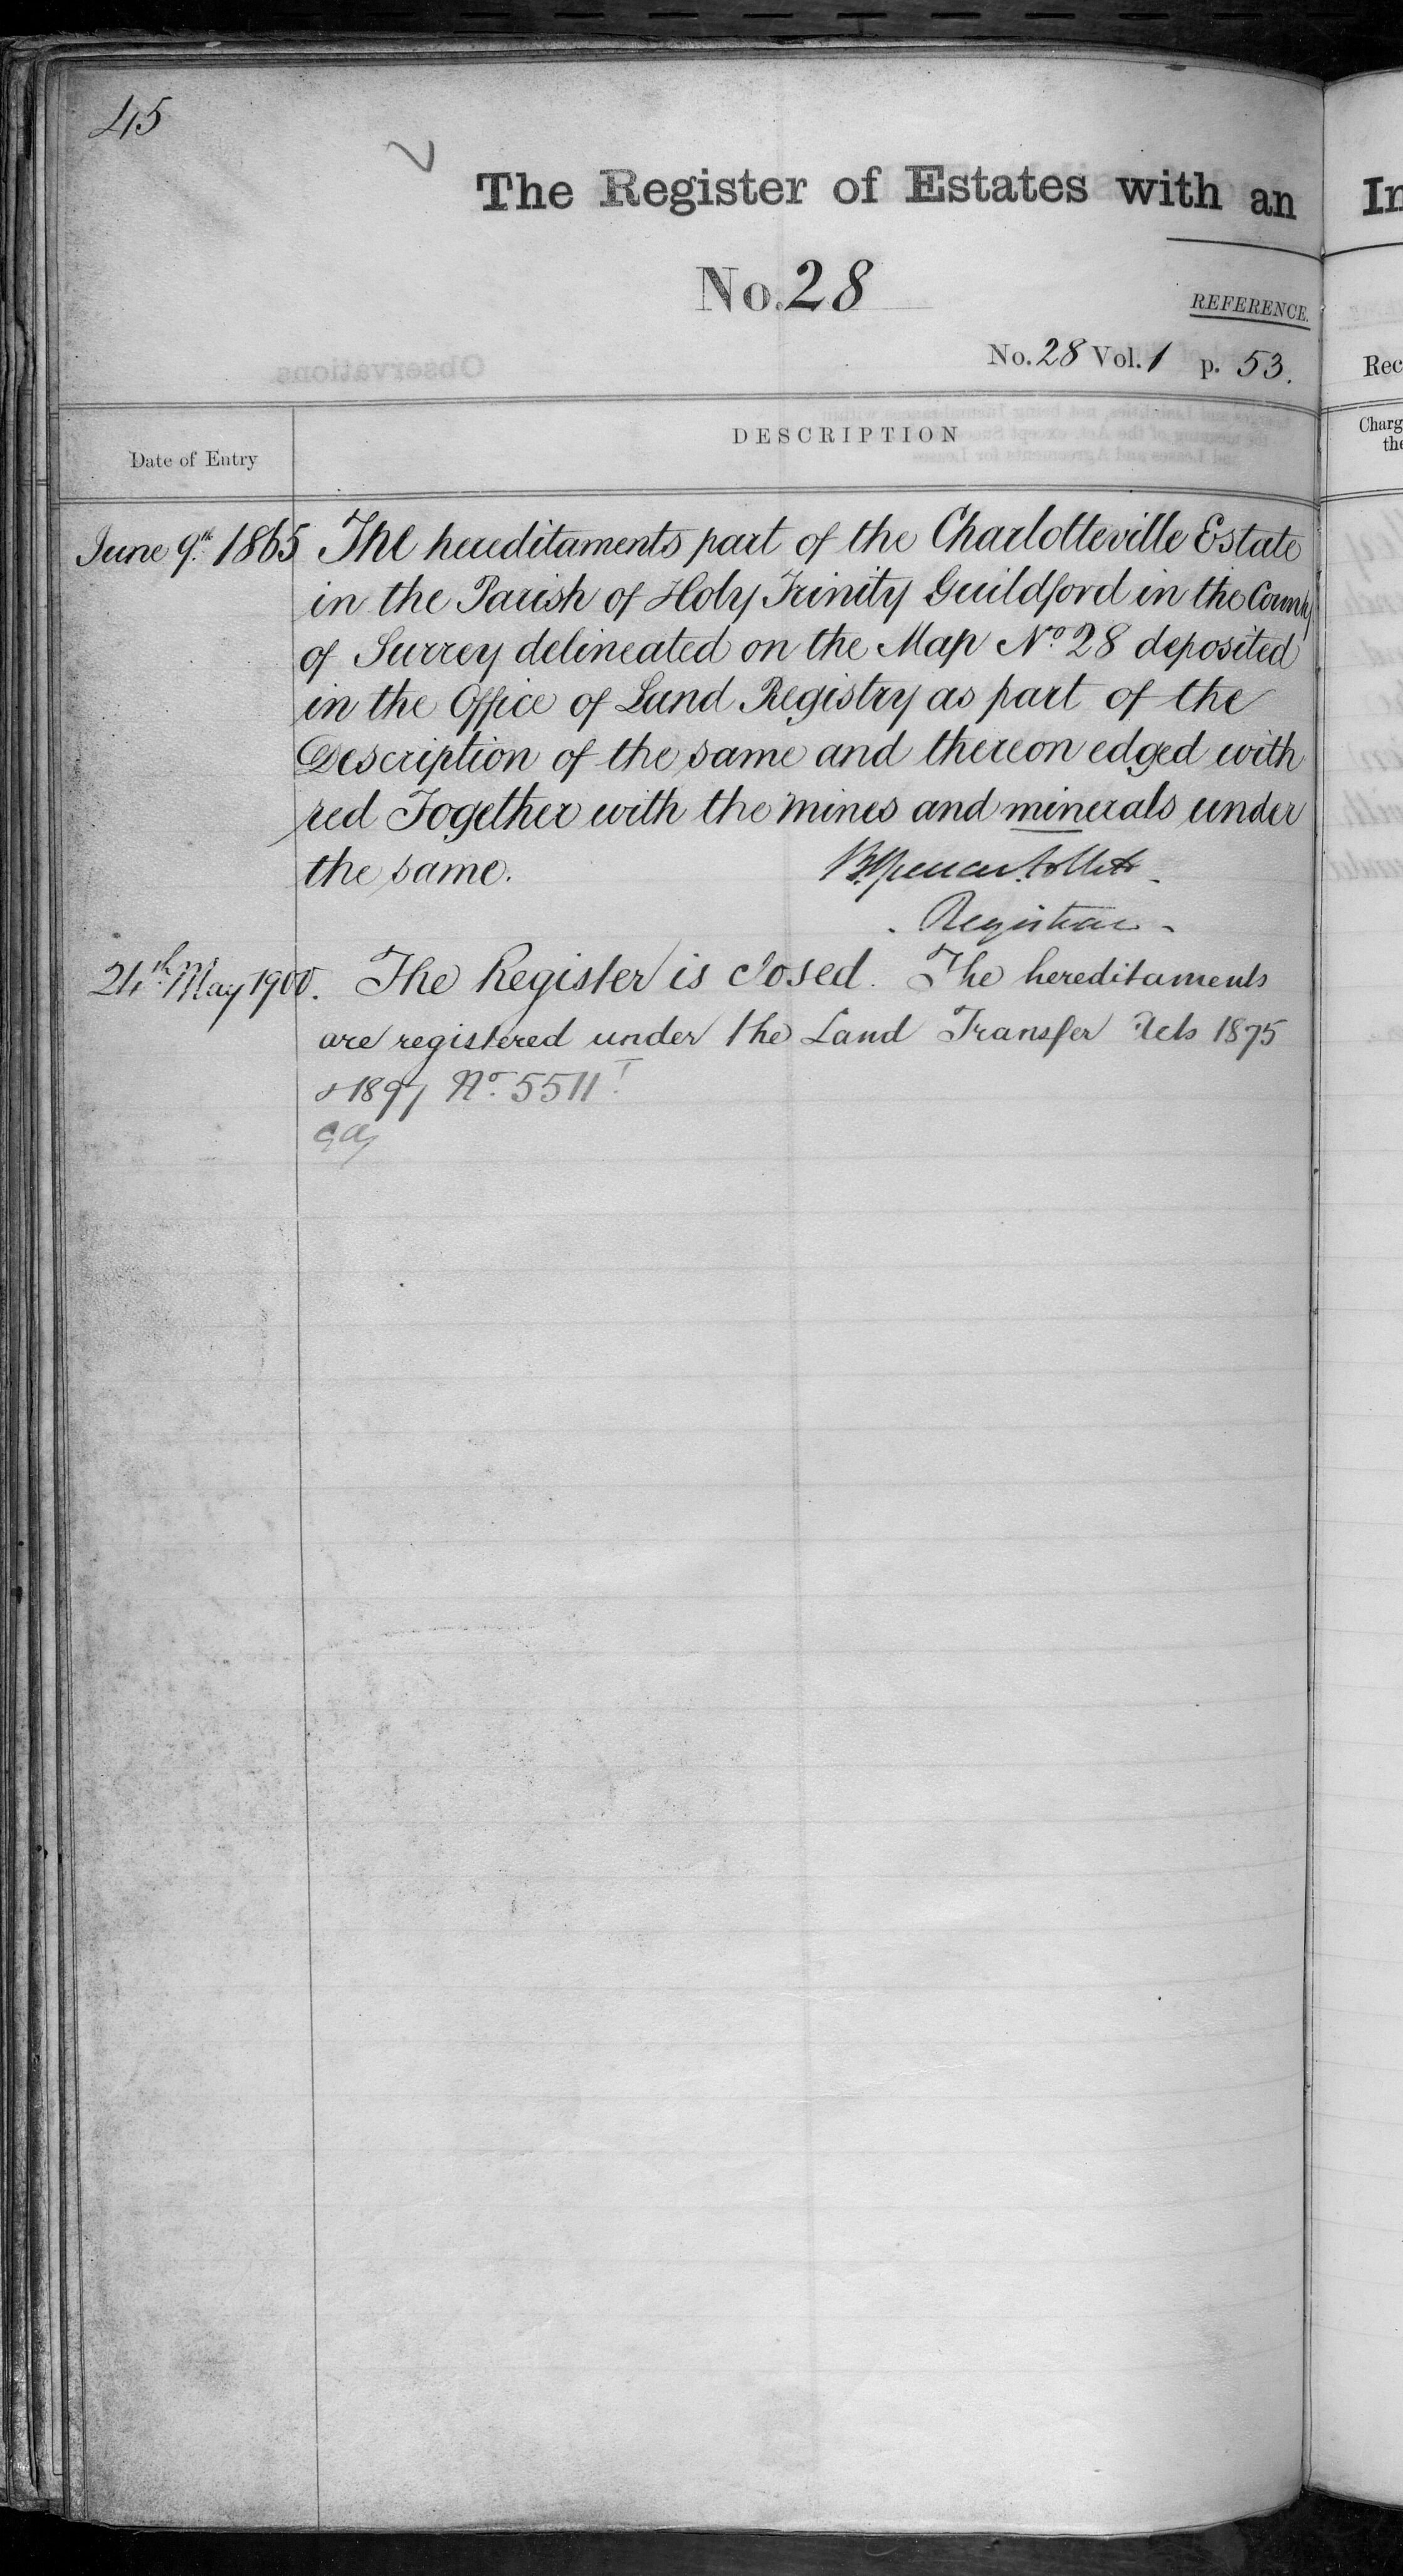 45
The Register of Estates with an
No. 28
REFERENCE.
No. 28 Vol. 1 p. 53.
Date of Entry
DESCRIPTION
June 9th 1865 The hereditaments part of the Charlotteville Estate
in the Parish of Holy Trinity Guildford in the County
of Surrey delineated on the Map No. 28 deposited
in the Office of Land Registry as part of the
Description of the same and thereon edged with
red Together with the mines and minerals under
the same.
Brent Spencer Follett
Registrar
24th May 1900. The Register is closed. The hereditaments
are registered under the Land Transfer Acts 1875
& 1897 No. 5511
In
Rec
Charg
the